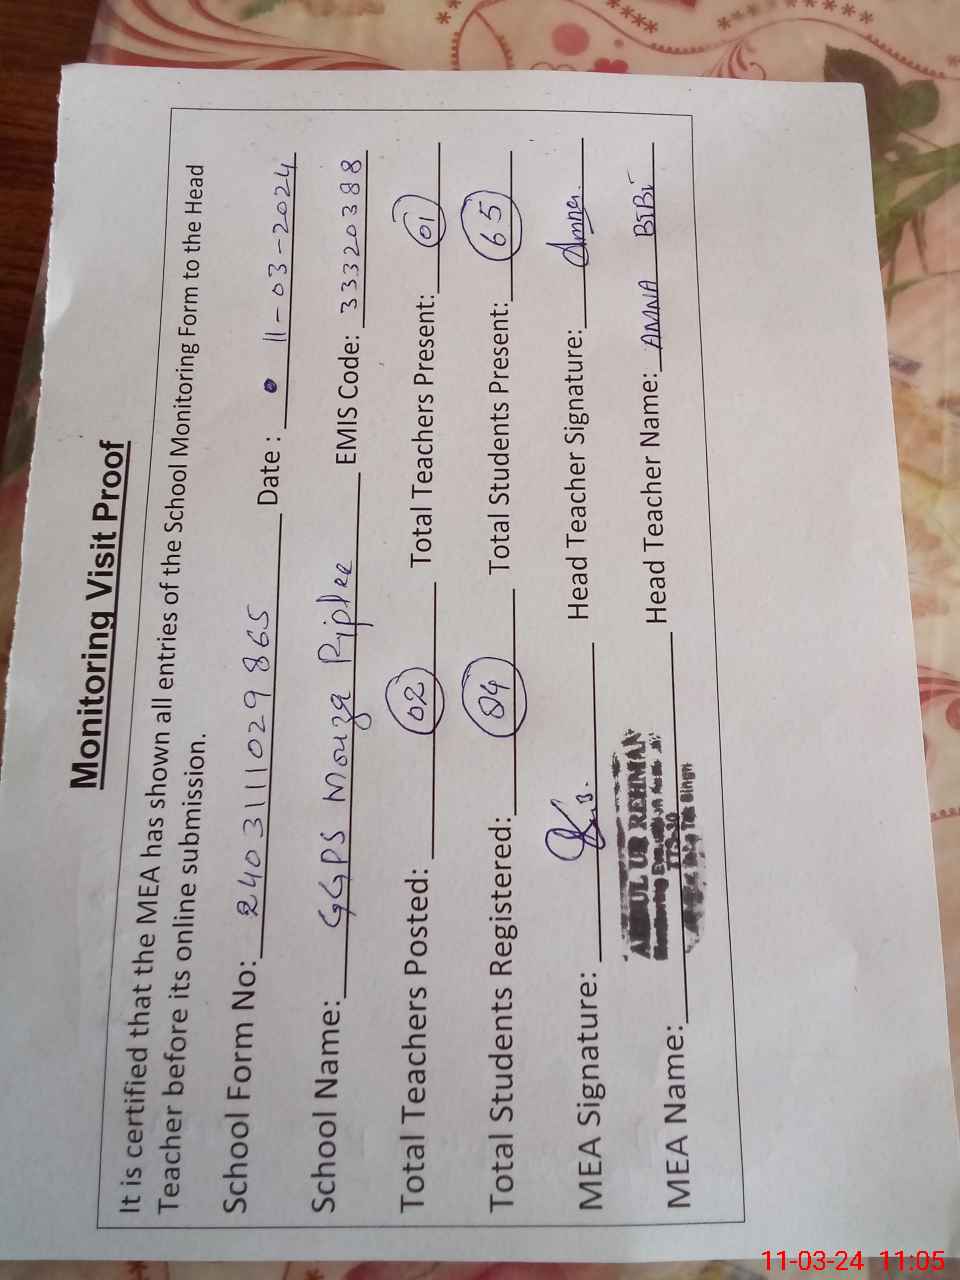 Monitoring Visit Proof
It is certified that the MEA has shown all entries of the School Monitoring Form to the Head
Teacher before its online submission.
School Form No: 240311029865 Date : 11-03-2024
School Name: GGPS Mouza Piplee EMIS Code: 33320388
Total Teachers Posted: 02 Total Teachers Present: 01
Total Students Registered: 84 Total Students Present: 65
MEA Signature: Head Teacher Signature: Amna
MEA Name: Head Teacher Name: AMNA BIBI
ABDUL UR REHMAN
Monitoring
Singh
11-03-24 11:05